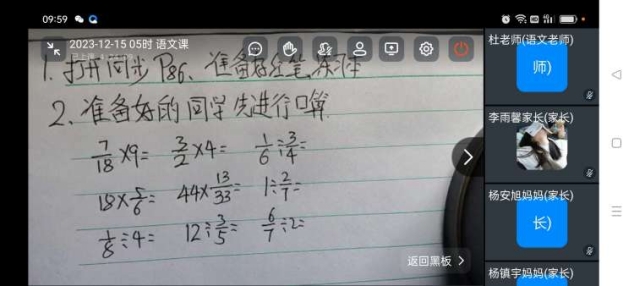 09:59
2023-12-15 05时 语文课
1. 打开同步P86、准备好红笔、练习本
2、准备好的同学先进行口算
7/18×9= 3/2×4= 1/6÷3/14=
18×5/6= 44×13/33= 1÷2/7=
1/8÷4= 12÷3/5= 6/7÷2=
返回黑板 >
杜老师(语文老师)
师)
李雨馨家长(家长)
杨安旭妈妈(家长)
长)
杨镇宇妈妈(家长)